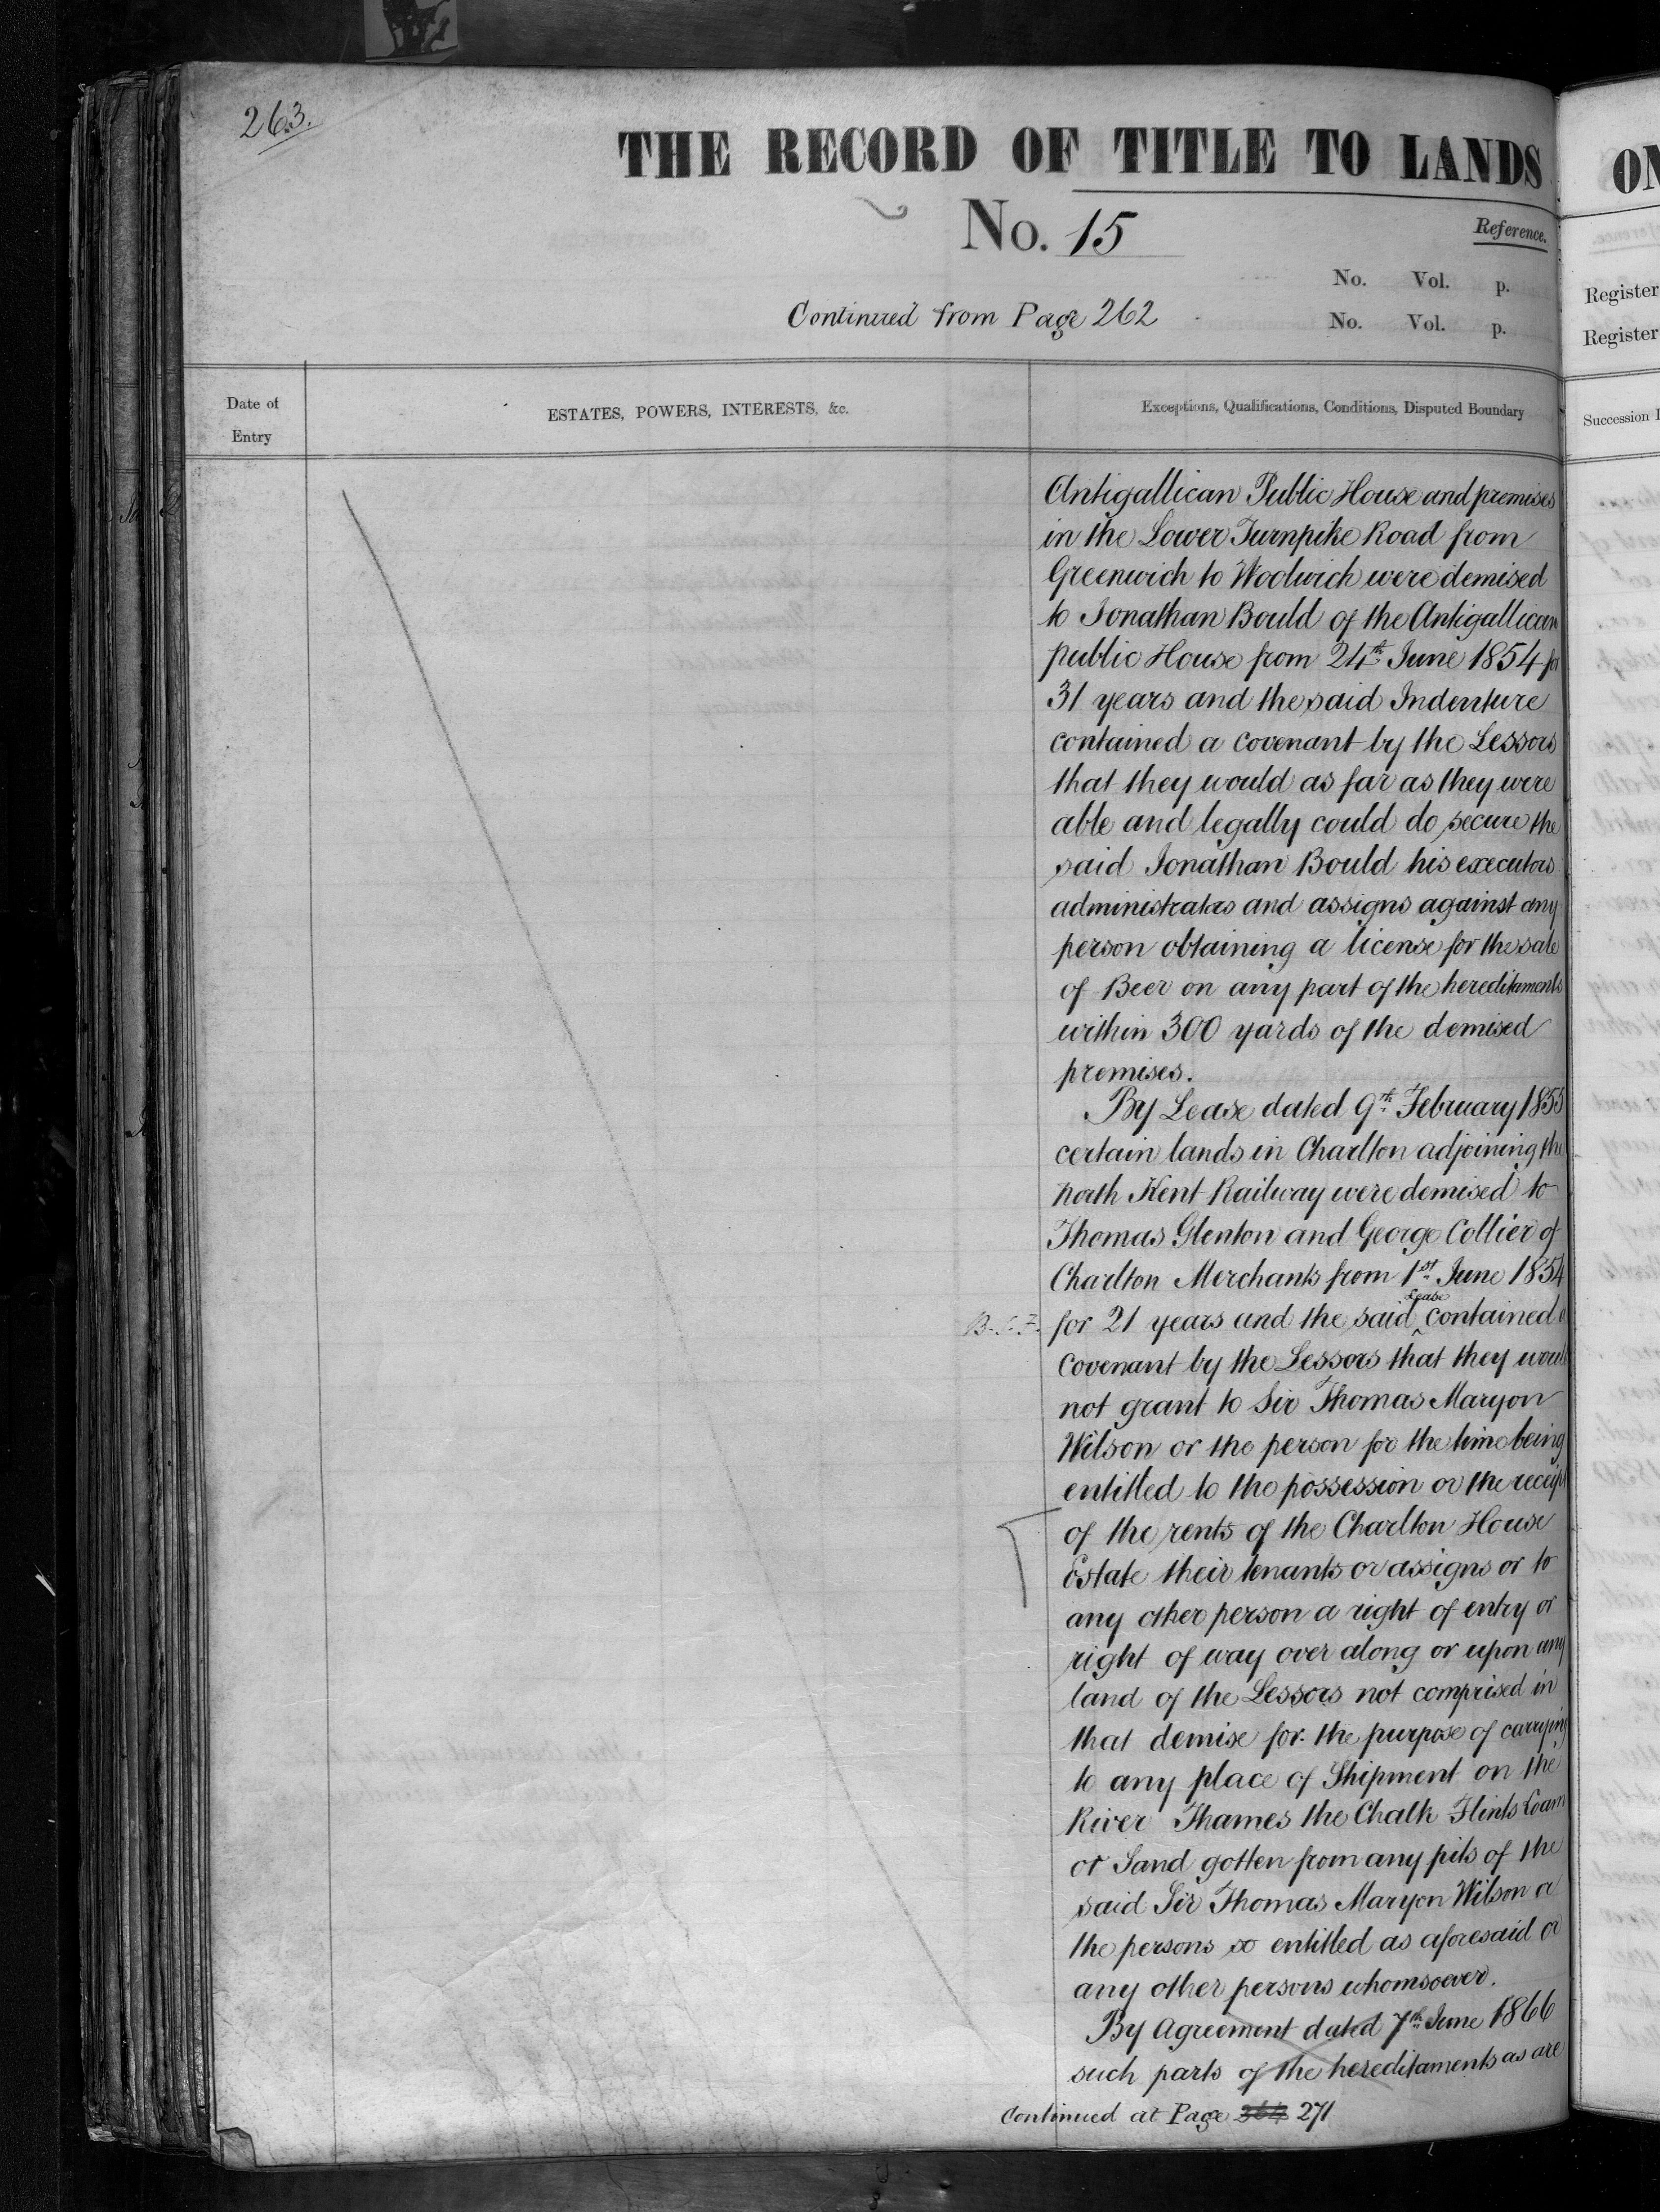 263.
THE RECORD OF TITLE TO LANDS
No. 15
Reference.
No. Vol. p.
Continued from Page 262
No. Vol. p.
Register
Register
Date of
Entry
ESTATES, POWERS, INTERESTS, &c.
Exceptions, Qualifications, Conditions, Disputed Boundary
Succession
Antigallican Public House and premises
in the Lower Turnpike Road from
Greenwich to Woolwich were demised
to Jonathan Bould of the Antigallican
public House from 24th June 1854 for
31 years and the said Indenture
contained a covenant by the Lessors
that they would as far as they were
able and legally could do secure the
said Jonathan Bould his executors
administrators and assigns against any
person obtaining a license for the sale
of Beer on any part of the hereditaments
within 300 yards of the demised
premises.
By Lease dated 9th February 1855
certain lands in Charlton adjoining the
North Kent Railway were demised to
Thomas Glenton and George Collier of
Charlton Merchants from 1st June 1854
for 21 years and the said Lease contained a
covenant by the Lessors that they would
not grant to Sir Thomas Maryon
Wilson or the person for the time being
entitled to the possession or the receipt
of the rents of the Charlton House
Estate their tenants or assigns or to
any other person a right of entry or
right of way over along or upon any
land of the Lessors not comprised in
that demise for the purpose of carrying
to any place of Shipment on the
River Thames the Chalk Flints Loam
or Sand gotten from any pits of the
said Sir Thomas Maryon Wilson or
the persons so entitled as aforesaid or
any other persons whomsoever.
By Agreement dated 7th June 1866
such parts of the hereditaments as are
Continued at Page 264 271